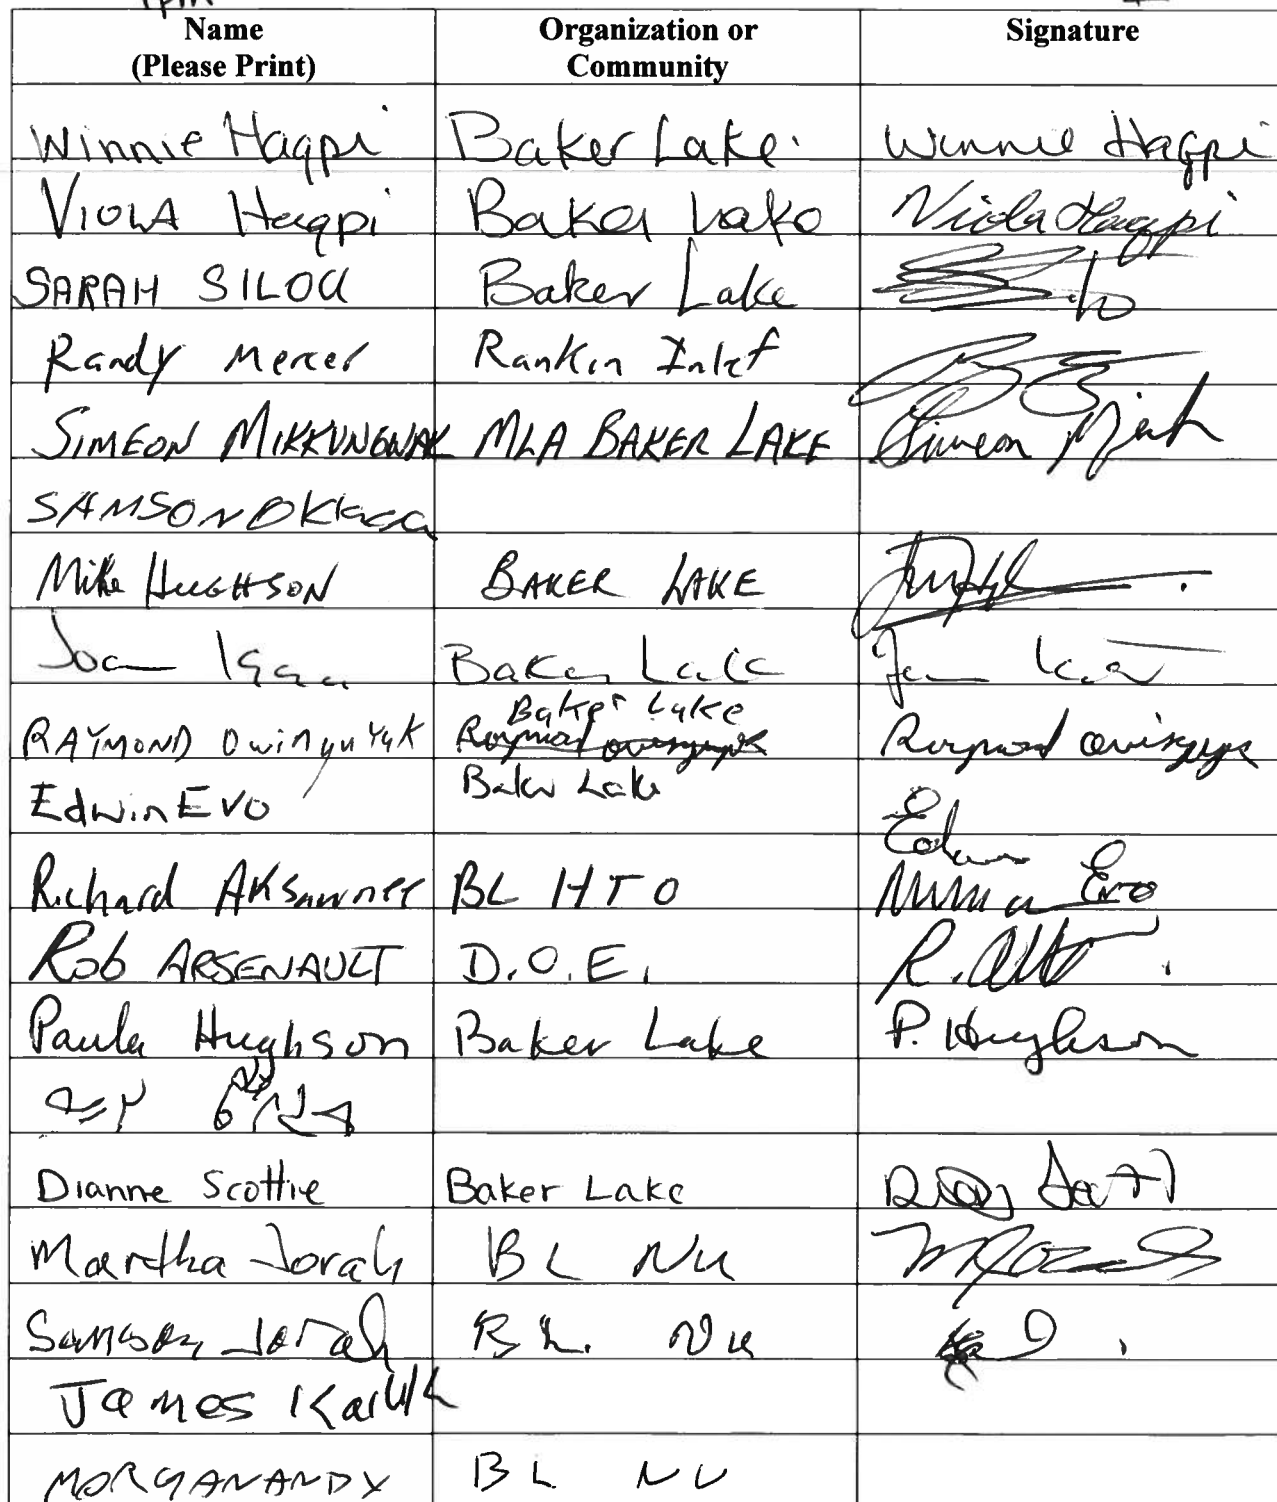 Name (Please Print) Organization or Community Signature
Winnie Haqpi Baker Lake. Winnie Haqpi
VIOLA Haqpi Baker Lake Viola Haqpi
SARAH SILOU Baker Lake
Randy Mercer Rankin Inlet
SIMEON MIKKUNGWAK MLA BAKER LAKE Simeon Mik
SAMSON
Mike HUGHSON BAKER LAKE
Joan Baker Lake
RAYMOND Owingayak Baker Lake Raymond
Edwin Evo Baker Lake Edwin Evo
Richard Aksawnee BL HTO
Rob ARSENAULT D.O.E.
Paula Hughson Baker Lake P. Hughson
Dianne Scottie Baker Lake
Martha Jorah BL NU
Samson Jorah B L. NU
James
MORGANANDY BL NU